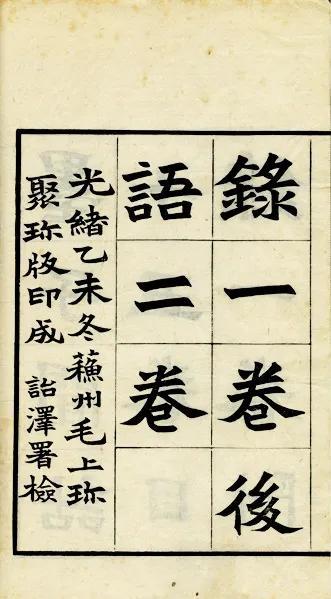 錄一卷後
語二卷
光緒乙未冬蘓州毛上珎
聚珎版印成 詒澤署檢